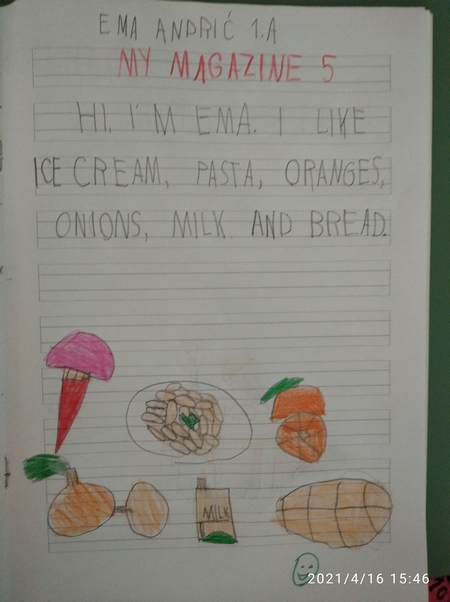 EMA ANDRIĆ 1.A
MY MAGAZINE 5
HI. I'M EMA. I LIKE
ICE CREAM, PASTA, ORANGES,
ONIONS, MILK AND BREAD.
MILK
2021/4/16 15:46